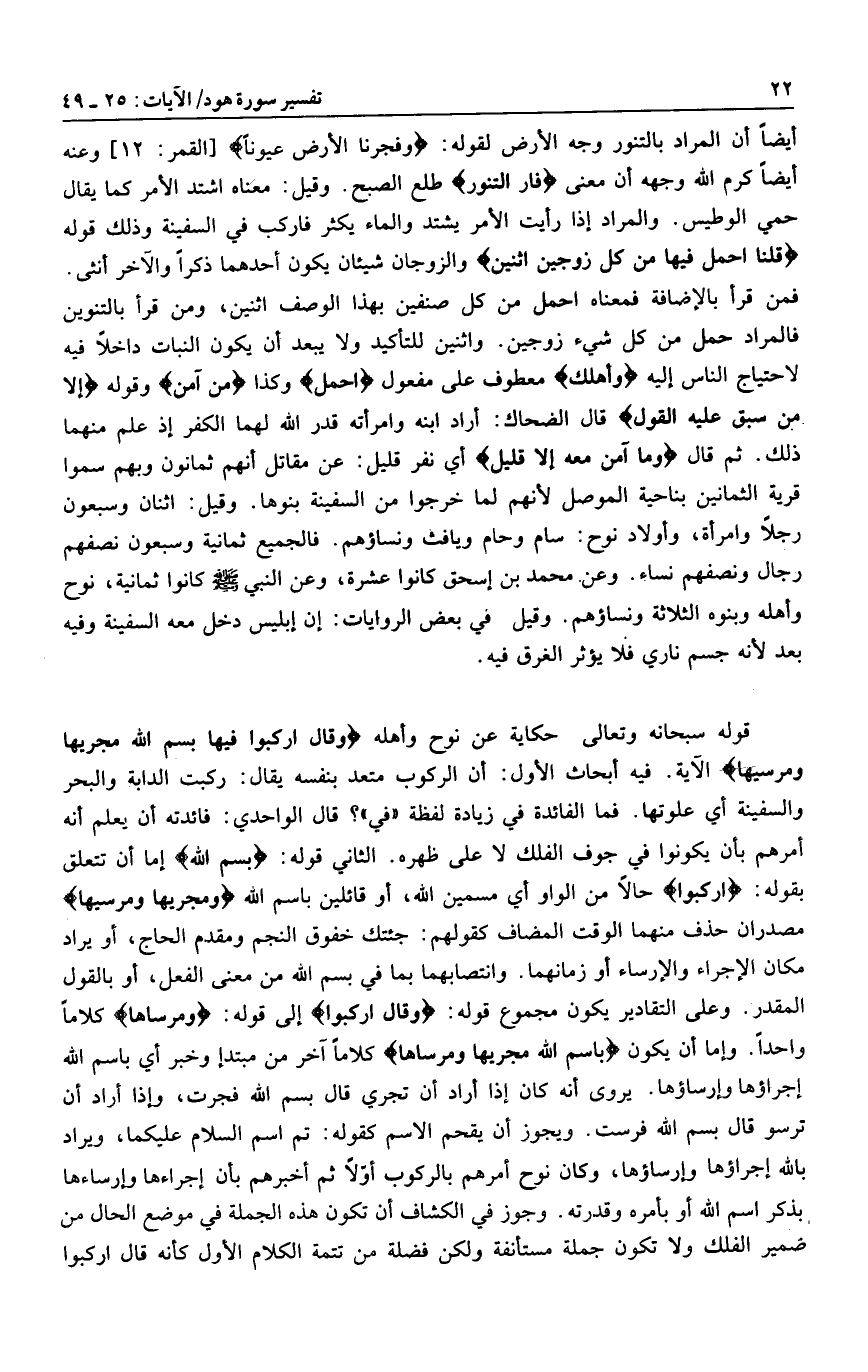 ٢٢
تفسير سورة هود/ الآيات: ٢٥ - ٤٩
أيضاً أن المراد بالتنور وجه الأرض لقوله: ﴿وفجرنا الأرض عيوناً﴾ [القمر: ١٢] وعنه
أيضاً كرم الله وجهه أن معنى ﴿فار التنور﴾ طلع الصبح. وقيل: معناه اشتد الأمر كما يقال
حمي الوطيس. والمراد إذا رأيت الأمر يشتد والماء يكثر فاركب في السفينة وذلك قوله
﴿قلنا احمل فيها من كل زوجين اثنين﴾ والزوجان شيئان يكون أحدهما ذكراً والآخر أنثى.
فمن قرأ بالإضافة فمعناه احمل من كل صنفين بهذا الوصف اثنين، ومن قرأ بالتنوين
فالمراد حمل من كل شيء زوجين. واثنين للتأكيد ولا يبعد أن يكون النبات داخلاً فيه
لاحتياج الناس إليه ﴿وأهلك﴾ معطوف على مفعول ﴿احمل﴾ وكذا ﴿من آمن﴾ وقوله ﴿إلا
من سبق عليه القول﴾ قال الضحاك: أراد ابنه وامرأته قدر الله لهما الكفر إذ علم منهما
ذلك. ثم قال ﴿وما آمن معه إلا قليل﴾ أي نفر قليل: عن مقاتل أنهم ثمانون وبهم سموا
قرية الثمانين بناحية الموصل لأنهم لما خرجوا من السفينة بنوها. وقيل: اثنان وسبعون
رجلاً وامرأة، وأولاد نوح: سام وحام ويافث ونساؤهم. فالجميع ثمانية وسبعون نصفهم
رجال ونصفهم نساء. وعن محمد بن إسحق كانوا عشرة، وعن النبي ﷺ كانوا ثمانية، نوح
وأهله وبنوه الثلاثة ونساؤهم. وقيل في بعض الروايات: إن إبليس دخل معه السفينة وفيه
بعد لأنه جسم ناري فلا يؤثر الغرق فيه.
قوله سبحانه وتعالى حكاية عن نوح وأهله ﴿وقال اركبوا فيها بسم الله مجريها
ومرسيها﴾ الآية. فيه أبحاث الأول: أن الركوب متعد بنفسه يقال: ركبت الدابة والبحر
والسفينة أي علوتها. فما الفائدة في زيادة لفظة «في»؟ قال الواحدي: فائدته أن يعلم أنه
أمرهم بأن يكونوا في جوف الفلك لا على ظهره. الثاني قوله: ﴿بسم الله﴾ إما أن تتعلق
بقوله: ﴿اركبوا﴾ حالاً من الواو أي مسمين الله، أو قائلين باسم الله ﴿ومجريها ومرسيها﴾
مصدران حذف منهما الوقت المضاف كقولهم: جئتك خفوق النجم ومقدم الحاج، أو يراد
مكان الإجراء والإرساء أو زمانهما. وانتصابهما بما في بسم الله من معنى الفعل، أو بالقول
المقدر. وعلى التقادير يكون مجموع قوله: ﴿وقال اركبوا﴾ إلى قوله: ﴿ومرساها﴾ كلاماً
واحداً. وإما أن يكون ﴿باسم الله مجريها ومرساها﴾ كلاماً آخر من مبتدإ وخبر أي باسم الله
إجراؤها وإرساؤها. يروى أنه كان إذا أراد أن تجري قال بسم الله فجرت، وإذا أراد أن
ترسو قال بسم الله فرست. ويجوز أن يقحم الاسم كقوله: تم اسم السلام عليكما، ويراد
بالله إجراؤها وإرساؤها، وكان نوح أمرهم بالركوب أوّلاً ثم أخبرهم بأن إجراءها وإرساءها
بذكر اسم الله أو بأمره وقدرته. وجوز في الكشاف أن تكون هذه الجملة في موضع الحال من
ضمير الفلك ولا تكون جملة مستأنفة ولكن فضلة من تتمة الكلام الأول كأنه قال اركبوا